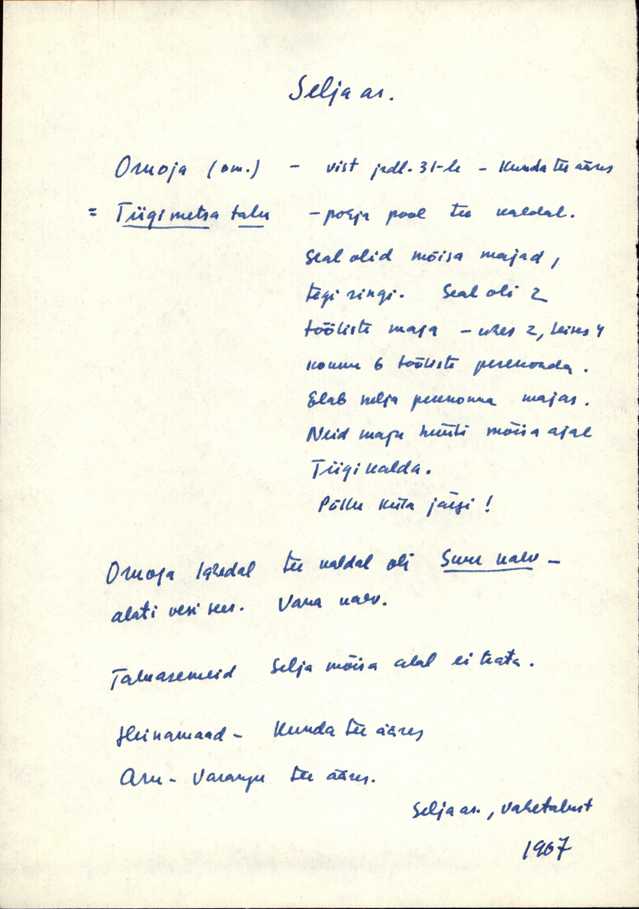 Selja as.
Oruoja (om.) - vist jrdl. 31-le - Kunda tee ääres
= Tiigimetsa talu - põhja pool tee kaldal.
Seal olid mõisa majad,
tegi ringi. Seal oli 2
tööliste maja - ühes 2, teises 4
kokku 6 tööliste perekonda.
Elab nelja perekonna majas.
Neid maju hüüti mõisa ajal
Tiigikalda.
Põllu küla järgi!
Oruoja lähedal tee kaldal oli Suur kaev -
alati vesi sees. Vana kaev.
Taluasemeid Selja mõisa alal ei teata.
Heinamaad - Kunda tee ääres
Aru - Varangu tee ääres.
Selja as., vahetalust
1967